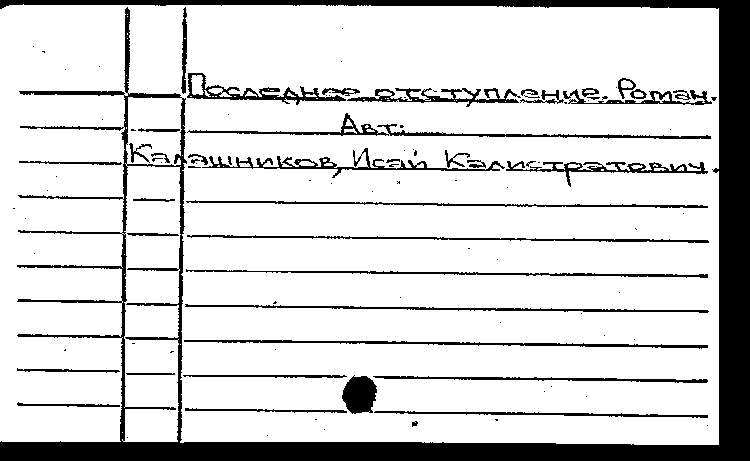 Последнее отступление. Роман.
Авт.:
Калашников, Исай Калистратович.